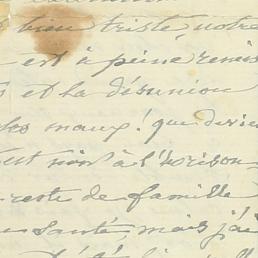 bien triste, notre
est à peine remis
et la désunion
les maux! que devien
est noir à l'horison
reste de famille
santé, mais j'ai